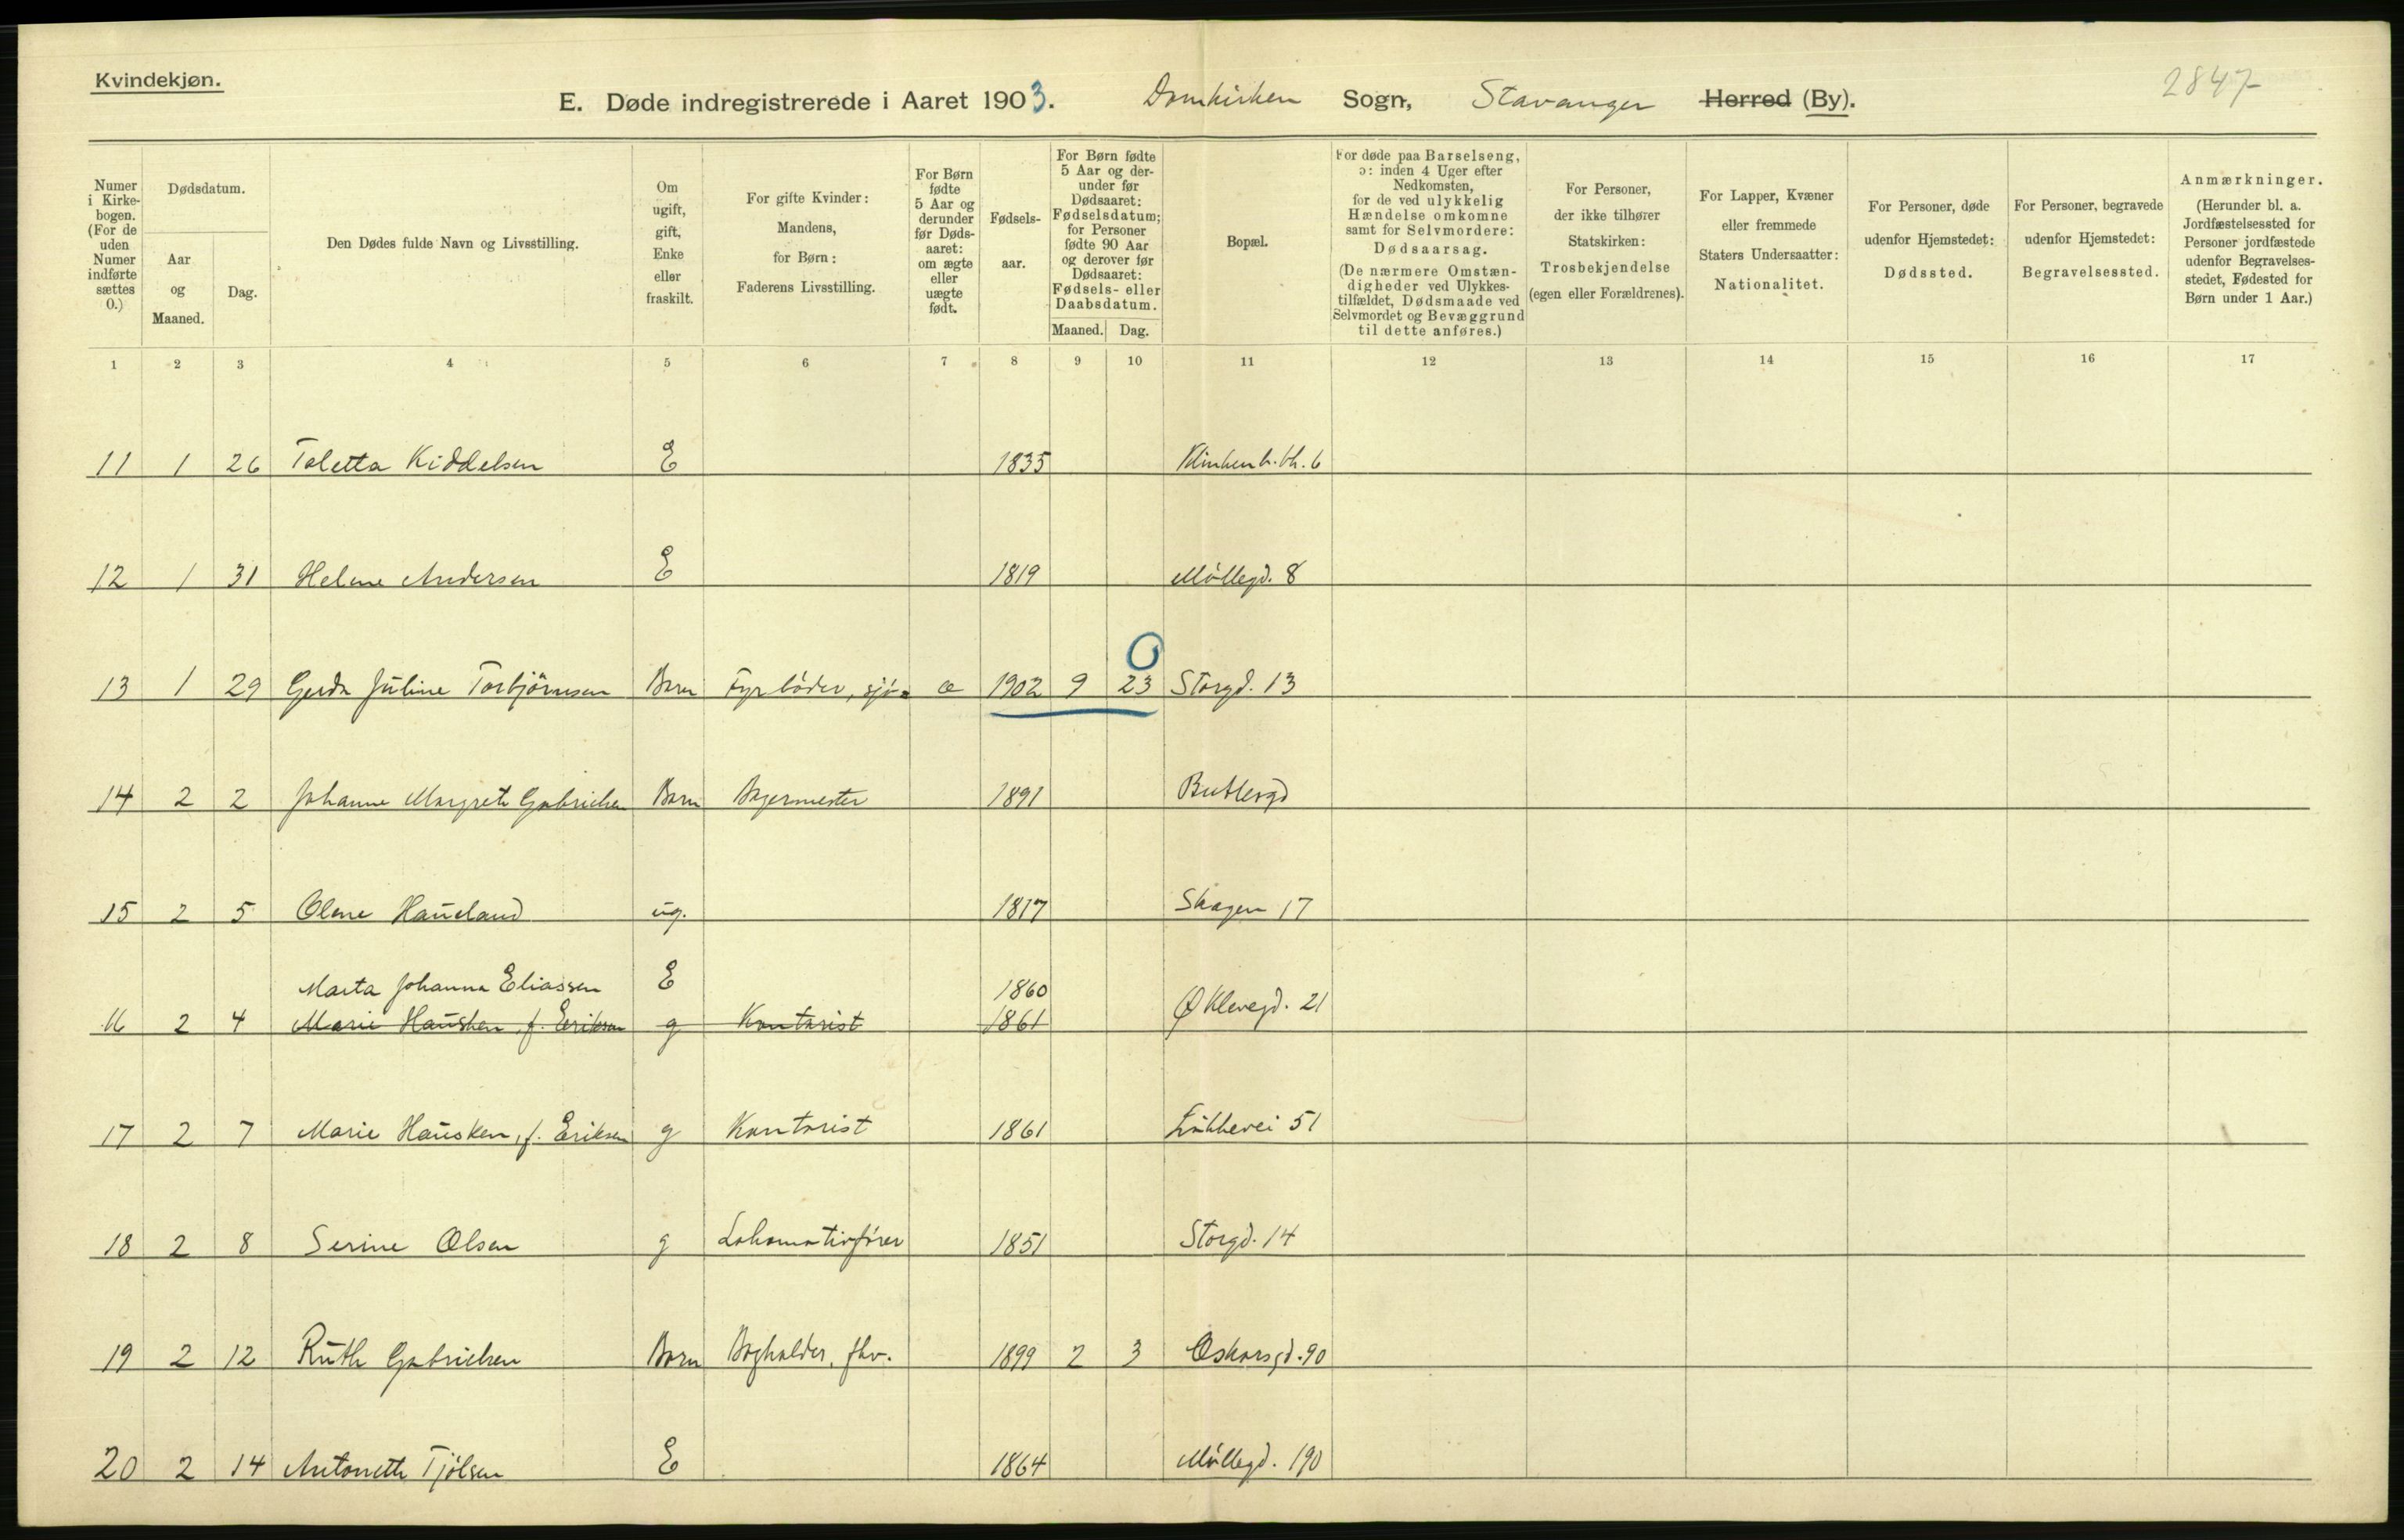 Kvindekjøn.
E. Døde indregistrerede i Aaret 1903. Domkirken Sogn, Stavanger Herred (By). 2847
Numer i Kirkebogen. (For de uden Numer indførte sættes 0.)
Dødsdatum.
Aar og Maaned.
Dag.
Den Dødes fulde Navn og Livsstilling.
Om ugift, gift, Enke eller fraskilt.
For gifte Kvinder: Mandens, for Børn: Faderens Livsstilling.
For Børn fødte 5 Aar og derunder før Dødsaaret: om ægte eller uægte født.
Fødselsaar.
For Børn fødte 5 Aar og derunder før Dødsaaret: Fødselsdatum; for Personer fødte 90 Aar og derover før Dødsaaret: Fødsels- eller Daabsdatum.
Maaned. Dag.
Bopæl.
For døde paa Barselseng, ɔ: inden 4 Uger efter Nedkomsten, for de ved ulykkelig Hændelse omkomne samt for Selvmordere: Dødsaarsag. (De nærmere Omstændigheder ved Ulykkestilfældet, Dødsmaade ved Selvmordet og Bevæggrund til dette anføres.)
For Personer, der ikke tilhører Statskirken: Trosbekjendelse (egen eller Forældrenes).
For Lapper, Kvæner eller fremmede Staters Undersaatter: Nationalitet.
For Personer, døde udenfor Hjemstedet: Dødssted.
For Personer, begravede udenfor Hjemstedet: Begravelsessted.
Anmærkninger. (Herunder bl. a. Jordfæstelsessted for Personer jordfæstede udenfor Begravelsesstedet, Fødested for Børn under 1 Aar.)
1 2 3 4 5 6 7 8 9 10 11 12 13 14 15 16 17
11 1 26 Taletta Kiddelsen E 1835
12 1 31 Helene Andersen E 1819 Møllegd. 8
13 1 29 Gerda Juline Torbjörnsen Barn Fyrbøder, sjö- æ 1902 9 23 Storgd. 13
14 2 2 Johanne Margrete Gabrielsen Barn Bagermester 1891
15 2 5 Olene Haueland ug. 1817 Skagen 17
Marta Johanna Eliassen E 1860
16 2 4 Marie Hausken, f. Eriksen g Kontorist 1861 Ø Klevegd. 21
17 2 7 Marie Hausken, f. Eriksen g Kontorist 1861 Løkkevei 51
18 2 8 Serine Olsen g Lokomotivfører 1851 Storgd. 14
19 2 12 Ruth Gabrielsen Barn Bogholder, fhv. 1899 2 3 Oskarsgd. 90
20 2 14 Antonette Tjølsen E 1864 Møllegd. 190